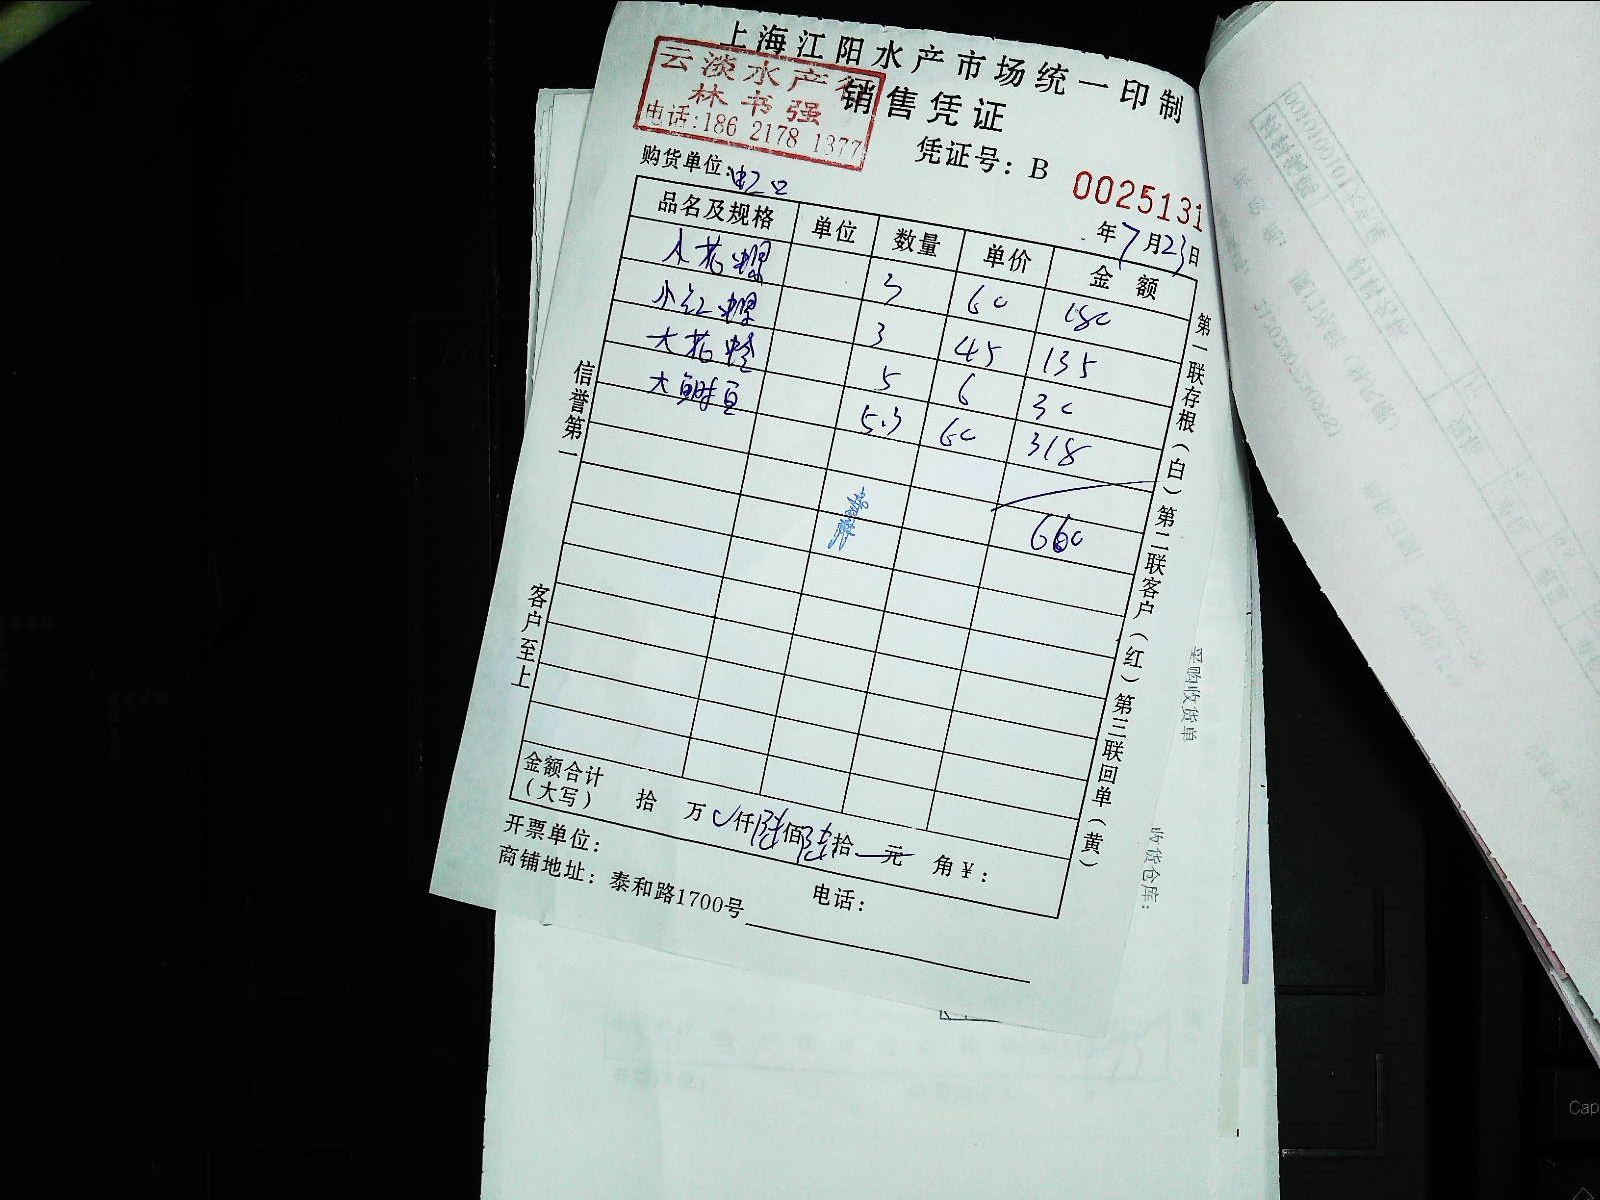 上海江阳水产市场统一印制
销售凭证
云淡水产行
林书强
电话:186 2178 1377
凭证号：B 0025131
购货单位:虹口
年7月23日
品名及规格 单位 数量 单价 金额
3 60 180
小红 3 45 135
大花蛤 5 6 30
大 5.3 60 318
660
金额合计（大写） 拾 万 仟陆佰陆拾 元 角¥：
开票单位： 电话：
商铺地址：泰和路1700号
信誉第一
客户至上
第一联存根（白）第二联客户（红）第三联回单（黄）
采购收货单
收货仓库：
Cap